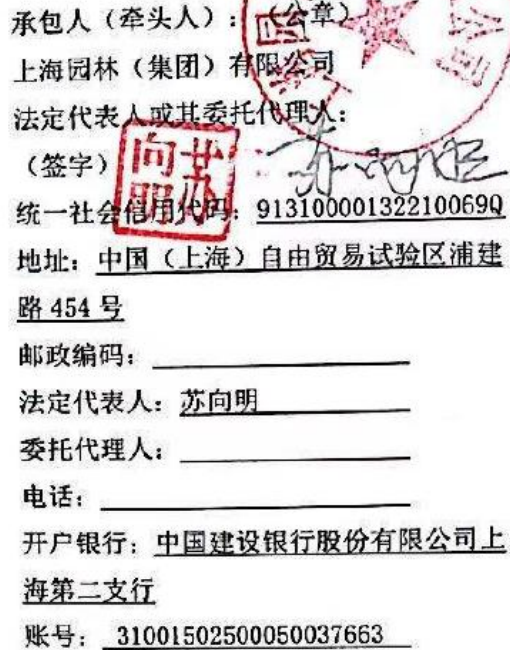 承包人（牵头人）：（公章）
上海园林（集团）有限公司
法定代表人或其委托代理人：
（签字）
苏向明
统一社会信用代码：91310000132210069Q
地址：中国（上海）自由贸易试验区浦建
路 454 号
邮政编码：
法定代表人：苏向明
委托代理人：
电话：
开户银行：中国建设银行股份有限公司上
海第二支行
账号：31001502500050037663